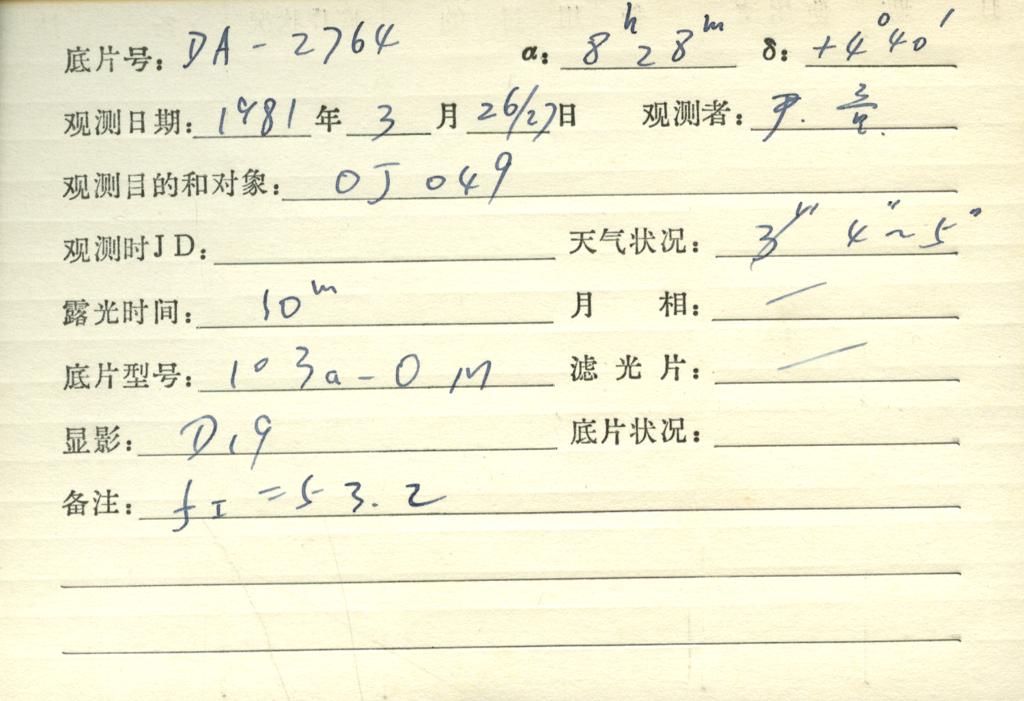 底片号: DA - 2764 α: 8h 28m δ: +4° 40′
观测日期: 1981 年 3 月 26/27 日 观测者:
观测目的和对象: OJ 049
观测时JD: 天气状况: 3 4″~5″
露光时间: 10m 月 相: —
底片型号: 103a-O 滤 光 片: —
显影: D19 底片状况:
备注: fI = 53.2